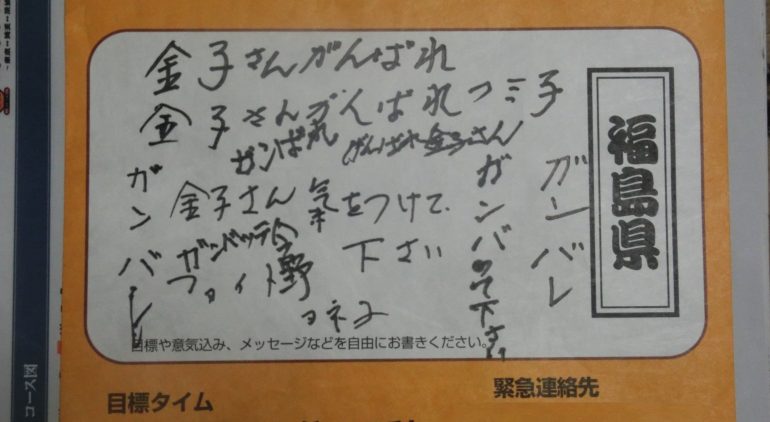 金子さんがんばれ
金子さんがんばれ フミ子
ガンばれ がんばれ金子さん
ガンバレ
金子さん 気をつけて
下さい
ガンバッテ
ファイト
野
ヨネ子
ガンバって下さい
ガンバレ
福島県
目標や意気込み、メッセージなどを自由にお書きください。
目標タイム
緊急連絡先
コース図